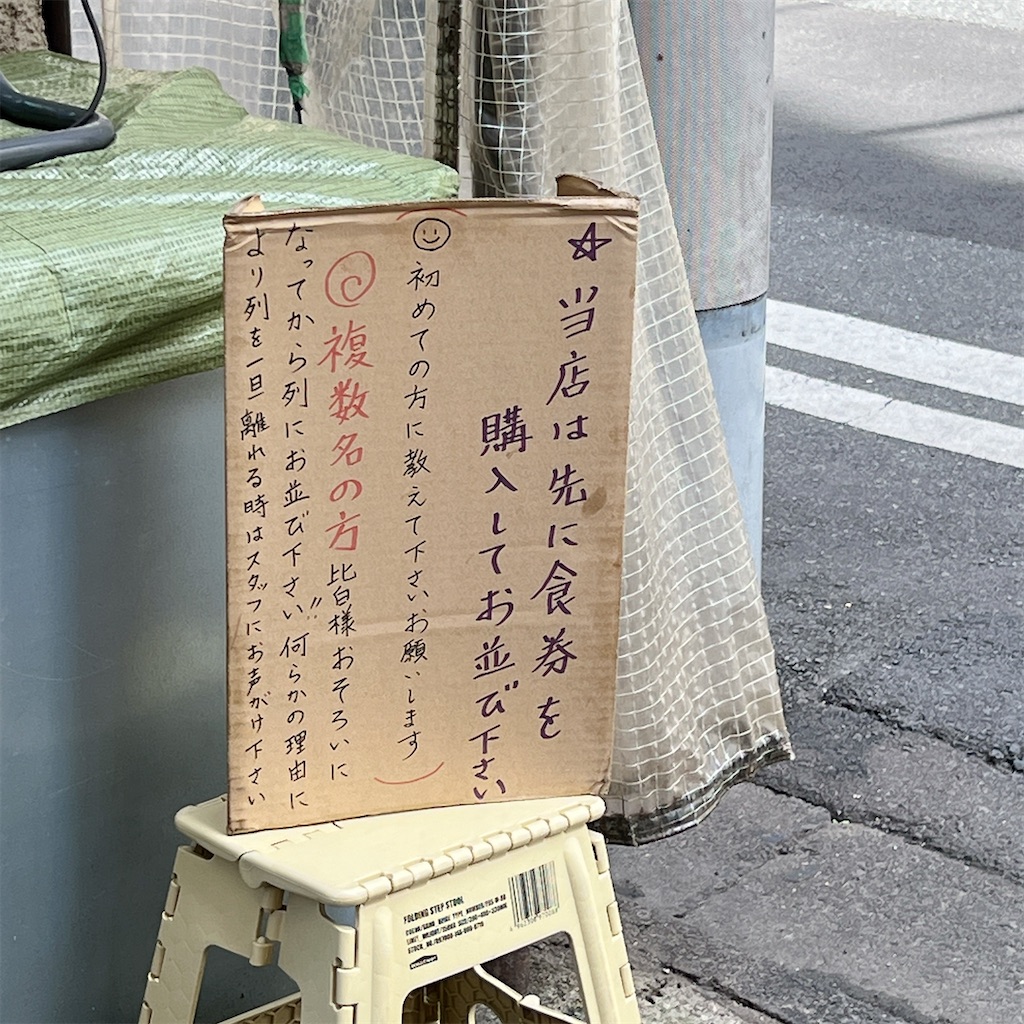 ☆当店は先に食券を
購入してお並び下さい
初めての方に教えて下さいお願いします
複数名の方皆様おそろいに
なってから列にお並び下さい!!何らかの理由に
より列を一旦離れる時はスタッフにお声がけ下さい
FOLDING STEP STOOL